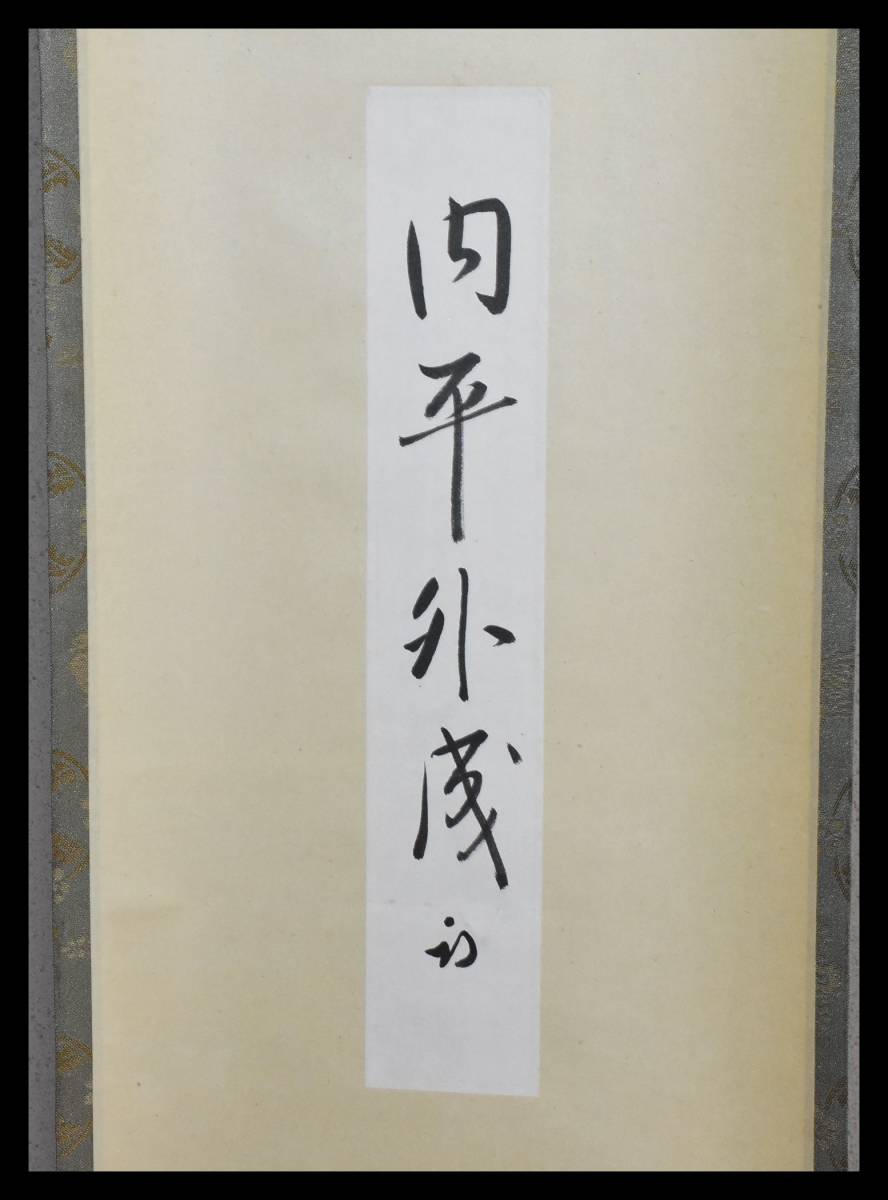 内平外成